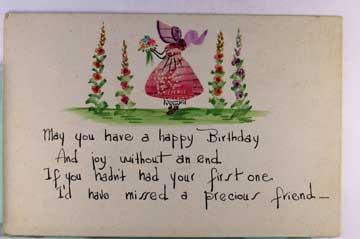 May you have a happy Birthday
And joy without an end.
If you hadn't had your first one.
I'd have missed a precious friend—